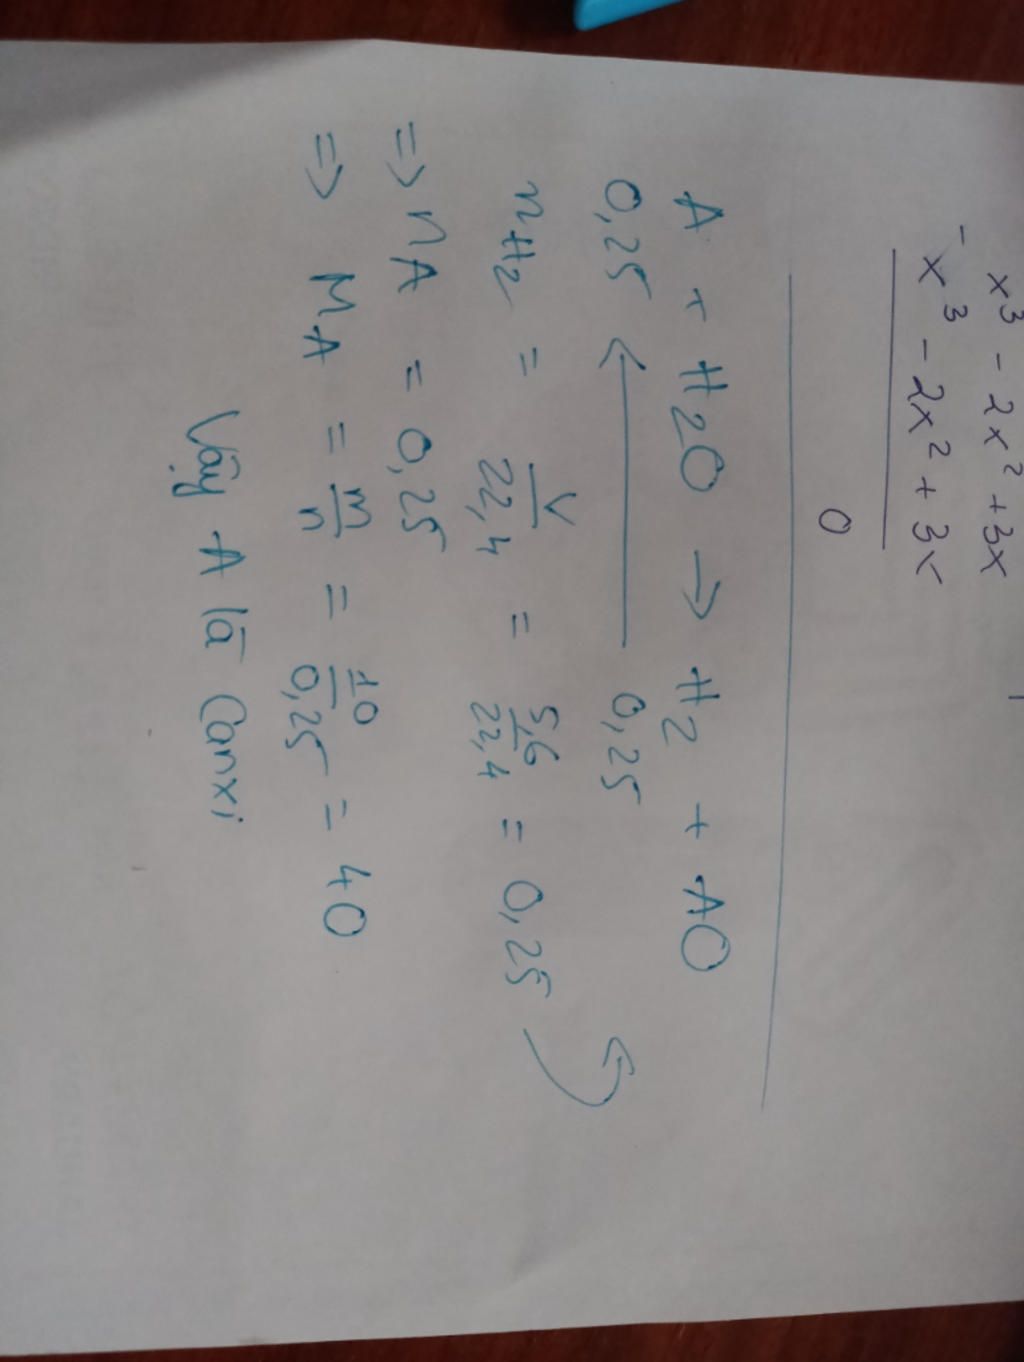 x³ - 2x² + 3x
- x³ - 2x² + 3x
0
A + H2O → H2 + AO
0,25 ← 0,25
nH2 = V/22,4 = 5,6/22,4 = 0,25
=> nA = 0,25
=> MA = m/n = 10/0,25 = 40
Vậy A là Canxi